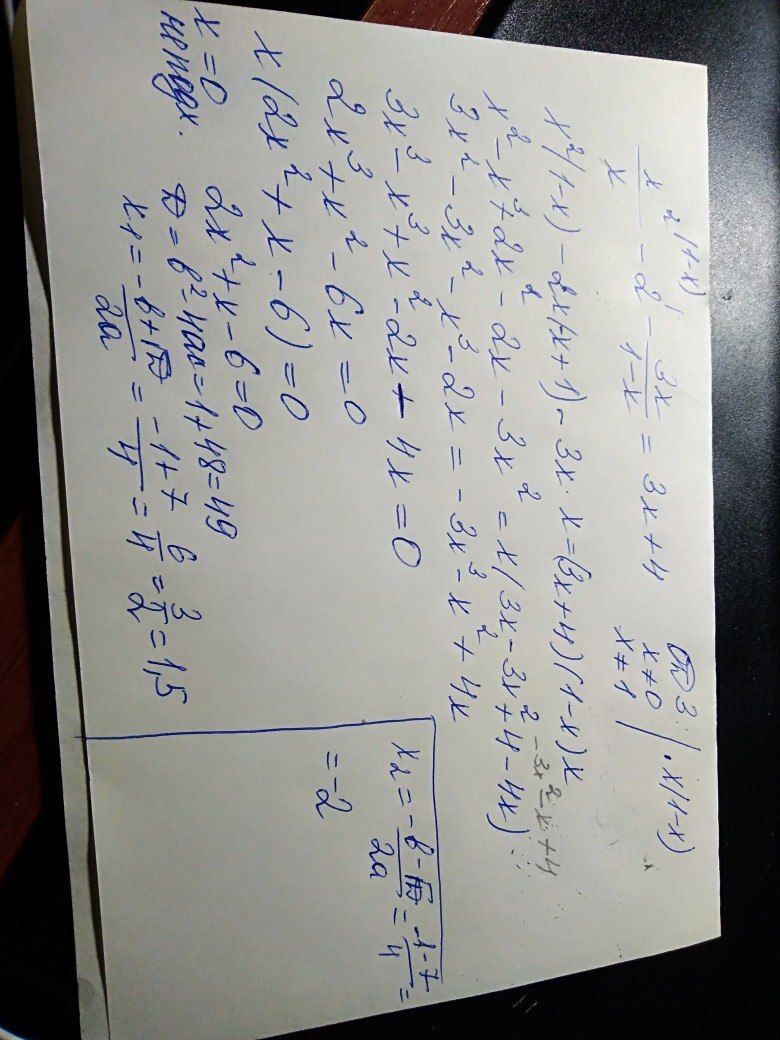 x²/x (1-x) - 2 - 3x/(1-x) = 3x+4 | · x(1-x)
ОДЗ:
x≠0
x≠1
x²(1-x) - 2x(x+1) - 3x·x = (3x+4)(1-x)x
-3x²-x+4
x² - x³ + 2x² - 2x - 3x² = x(3x - 3x² + 4 - 4x)
3x² - 3x² - x³ - 2x = -3x³ - x² + 4x
3x³ - x³ + x² - 2x - 4x = 0
2x³ + x² - 6x = 0
x(2x² + x - 6) = 0
x = 0
не подх.
2x² + x - 6 = 0
D = b² - 4ac = 1 + 48 = 49
x₁ = (-b+√D)/2a = (-1+7)/4 = 6/4 = 3/2 = 1,5
x₂ = (-b-√D)/2a = (-1-7)/4 =
= -2